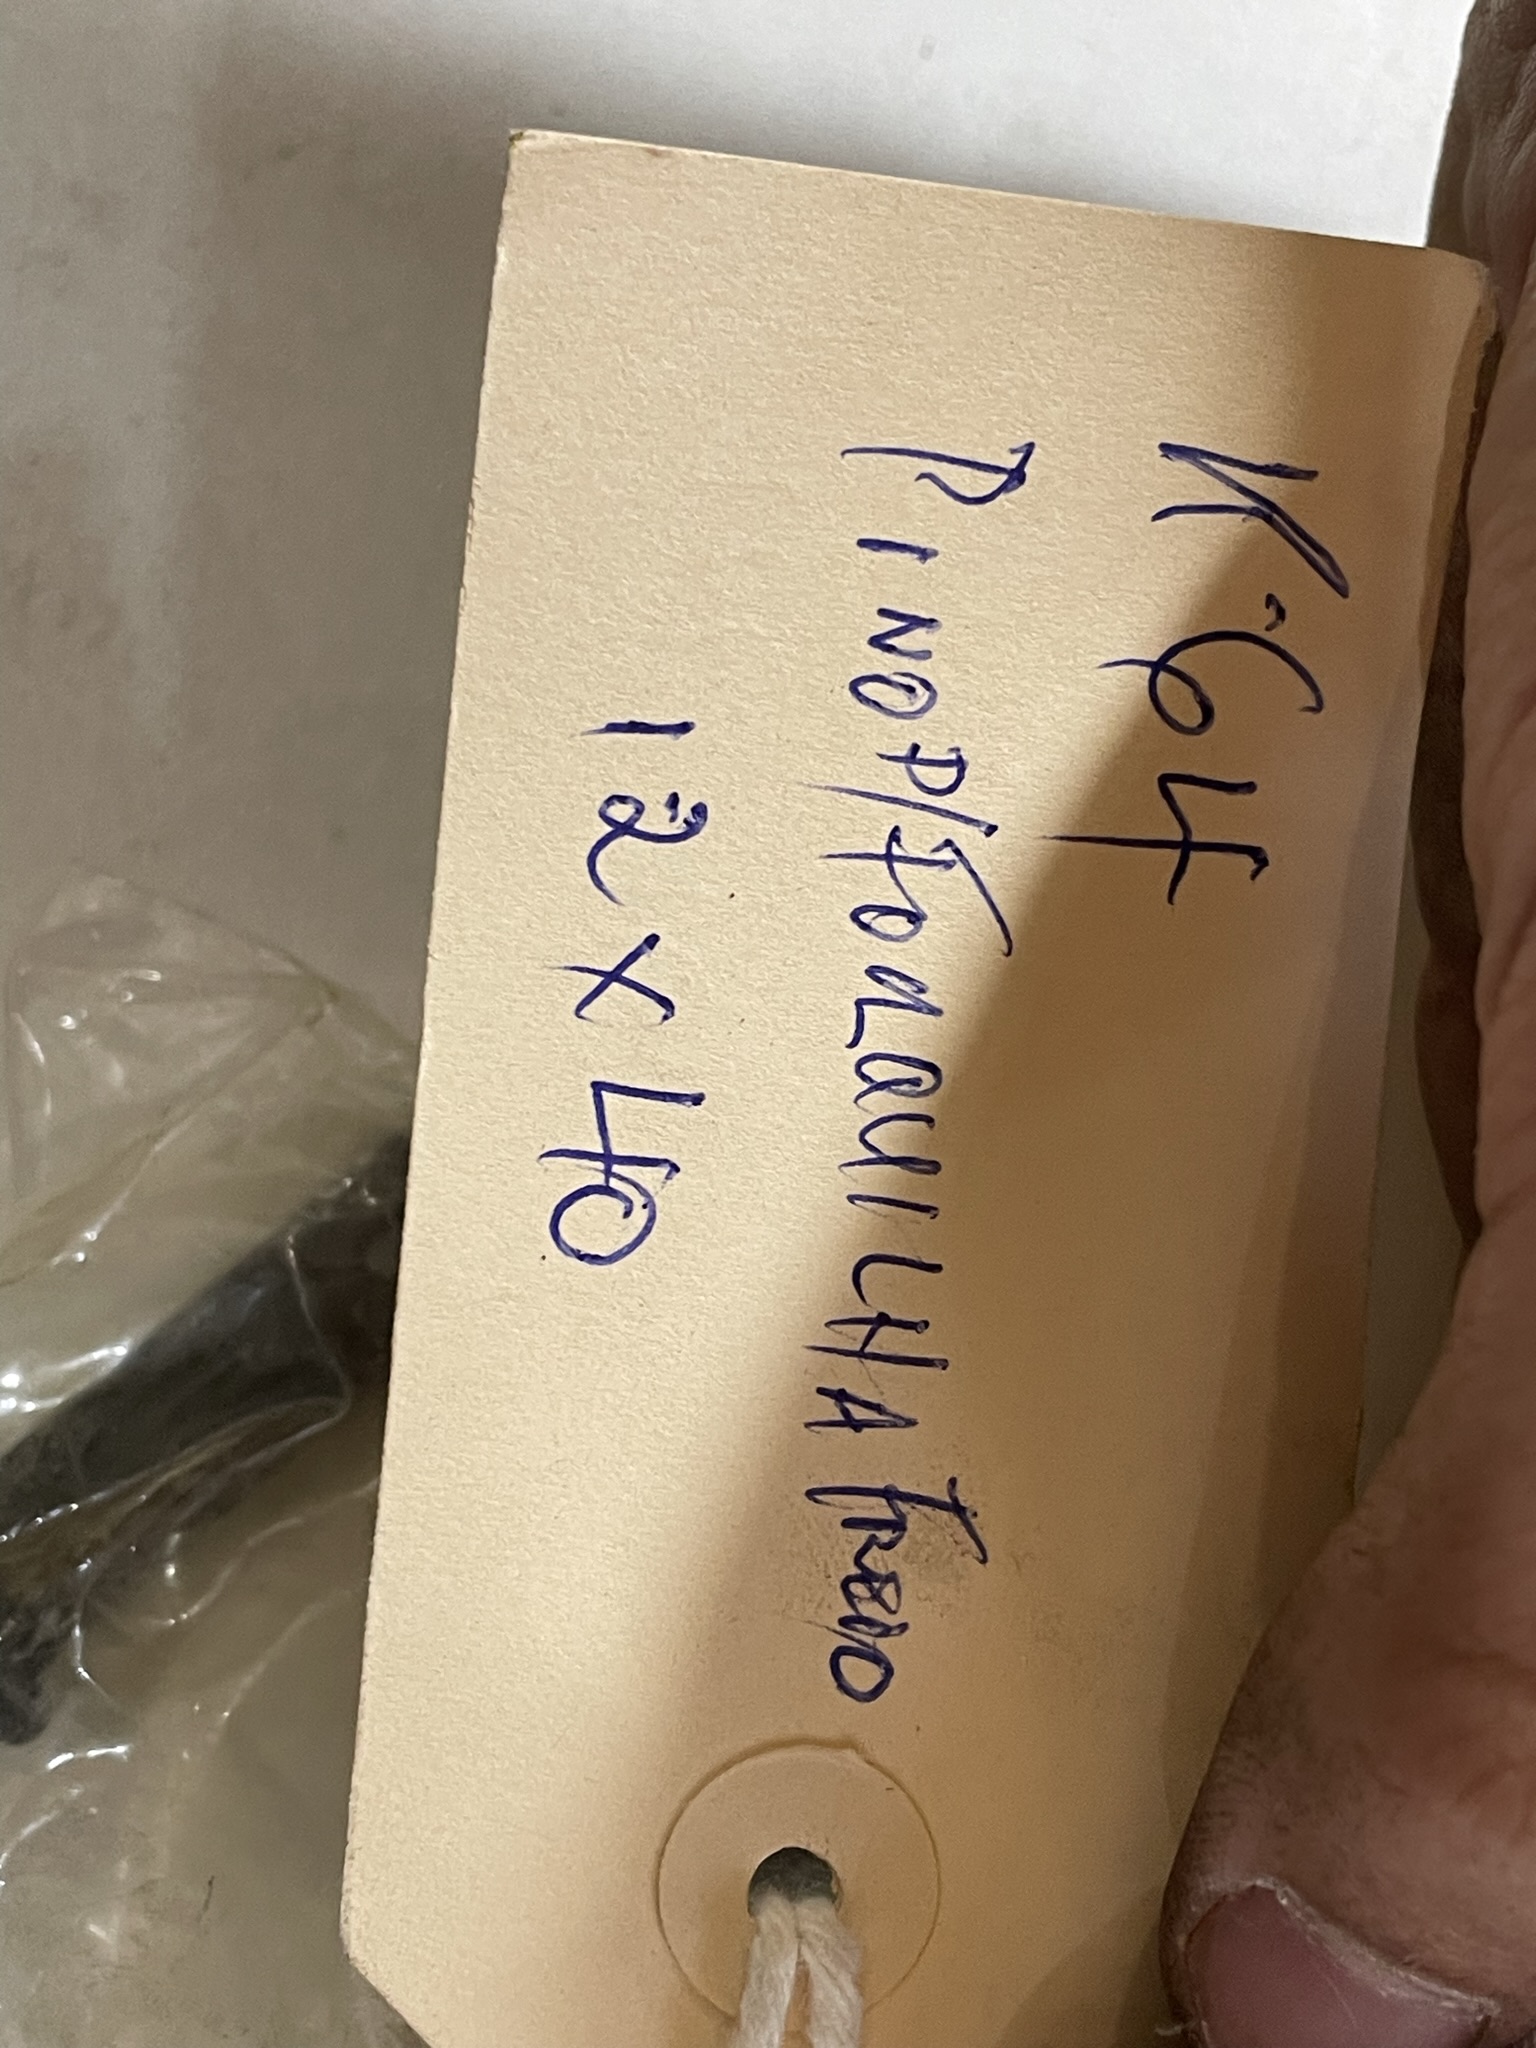 K-64
PINO P/ FORQUILHA FREIO
12 x 40